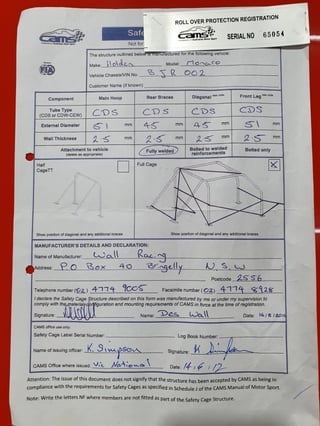 ROLL OVER PROTECTION REGISTRATION
CAMS
SERIAL NO 65054
CAMS
Safe
Not for
The structure outlined below is manufactured for the following vehicle:
Make Holden Model Monaro
Vehicle Chassis/VIN No BJR 002
Customer Name (if known)
FIA
Component Main Hoop Rear Braces Diagonal Front Leg
Tube Type (CDS or CDW-CEW) CDS CDS CDS CDS
External Diameter 51 mm 45 mm 45 mm 51 mm
Wall Thickness 2.5 mm 2.5 mm 2.5 mm 2.5 mm
Attachment to vehicle (delete as appropriate) Fully welded Bolted to welded reinforcements Bolted only
Half Cage?? Full Cage X
Show position of diagonal and any additional braces Show position of diagonal and any additional braces
MANUFACTURER'S DETAILS AND DECLARATION:
Name of Manufacturer: Wall Racing
Address: P.O Box 40 Bringelly N.S.W
Postcode 2556
Telephone number (02) 4774 9005 Facsimile number (02) 4774 8928
I declare the Safety Cage Structure described on this form was manufactured by me or under my supervision to comply with the material, configuration and mounting requirements of CAMS at time of registration.
Signature Name: Des Wall Date:
CAMS office use only:
Safety Cage Label Serial Number: Log Book Number:
Name of issuing officer: K. Simpson Signature: K Simpson
CAMS Office where issued: Vic National Date:
Attention: The issue of this document does not signify that the structure has been accepted by CAMS as being
in compliance with the requirements for Safety Cages as specified in Schedule J of the CAMS Manual of Motor Sport.
Note: Write the letters NF where members are not fitted as part of the Safety Cage Structure.